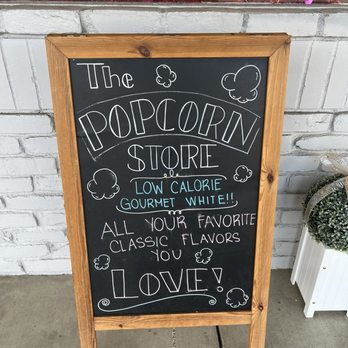 The
POPCORN
STORE
LOW CALORIE
GOURMET WHITE!!
ALL YOUR FAVORITE
CLASSIC FLAVORS
YOU
LOVE!